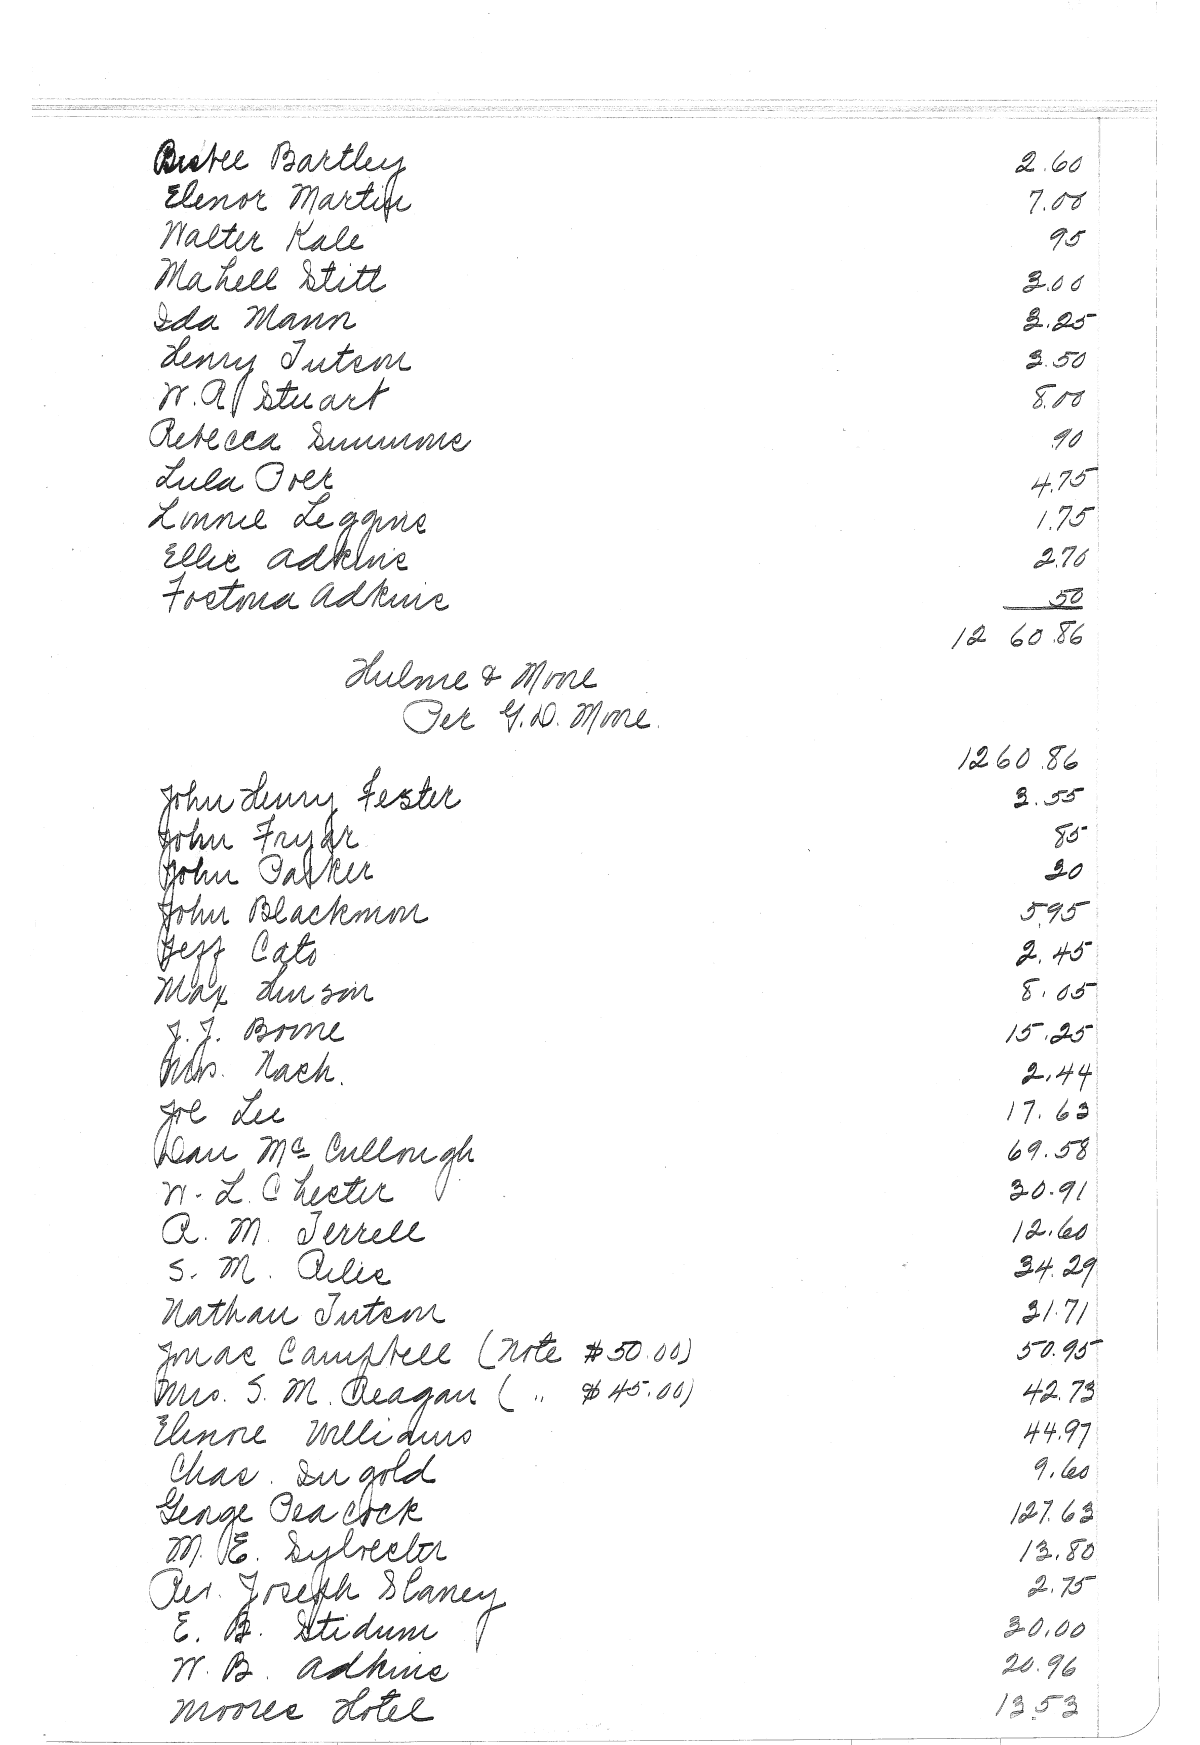 Bistee Bartley 2.60
Elenor Martin 7.00
Walter Kale 95
Mahell Stitt 3.00
Ida Mann 3.25
Henry Tutson 3.50
W. A. Stuart 8.00
Rebecca Simmons 90
Lula Poer 4.75
Lonnie Leggins 1.75
Ellis Adkins 2.70
Fostoria Adkins 50
1260.86
Hulme & Moore
Per G. D. Moore.
1260.86
John Henry Fester 3.55
John Fryar 85
John Parker 30
John Blackmon 5.95
Jeff Cato 2.45
Max Hinson 8.05
J. J. Boone 15.25
Mrs. Nash. 2.44
Joe Lee 17.63
Dan McCullough 69.58
W. L. Chester 30.91
A. M. Terrell 12.60
S. M. Riles 34.29
Nathan Tutson 31.71
Jonas Campbell (Note $50.00) 50.95
Mrs. S. M. Reagan ( " $45.00) 42.73
Elinore Williams 44.97
Chas. Sugold 9.60
George Peacock 127.63
M. E. Sylvester 13.80
Rev. Joseph Slaney 2.75
E. B. Stidum 30.00
W. B. Adkins 20.96
Moores Hotel 13.53